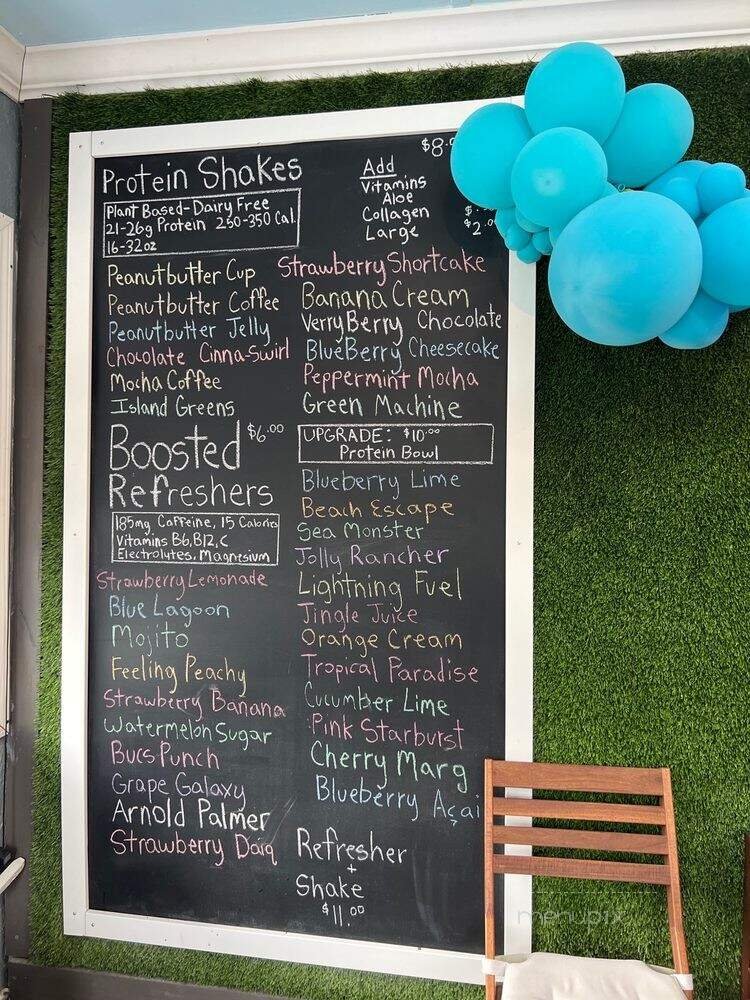 Protein Shakes
Plant Based-Dairy Free
21-26g Protein 250-350 Cal.
16-32oz
Add
Vitamins
Aloe
Collagen
Large
Peanutbutter Cup
Peanutbutter Coffee
Peanutbutter Jelly
Chocolate Cinna-Swirl
Mocha Coffee
Island Greens
Strawberry Shortcake
Banana Cream
Verry Berry Chocolate
BlueBerry Cheesecake
Peppermint Mocha
Green Machine
UPGRADE: $10.00
Protein Bowl
Boosted $6.00
Refreshers
185mg Caffeine, 15 Calories
Vitamins B6, B12, C
Electrolytes, Magnesium
Strawberry Lemonade
Blue Lagoon
Mojito
Feeling Peachy
Strawberry Banana
Watermelon Sugar
Bucs Punch
Grape Galaxy
Arnold Palmer
Strawberry Daiq
Blueberry Lime
Beach Escape
Sea Monster
Jolly Rancher
Lightning Fuel
Jingle Juice
Orange Cream
Tropical Paradise
Cucumber Lime
Pink Starburst
Cherry Marg
Blueberry Açai
Refresher
+
Shake
$11.00
menupix